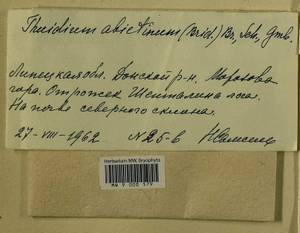 Thuidium abietinum (Brid.) Br., Sch., Gmb.
Липецкая обл. Донской р-н. Морозова
гора. Отрожек Шепталина лога.
На почве северного склона.
27-VIII-1962 N 25-б
Herbarium MW, Bryophyta
MW 9 000 379